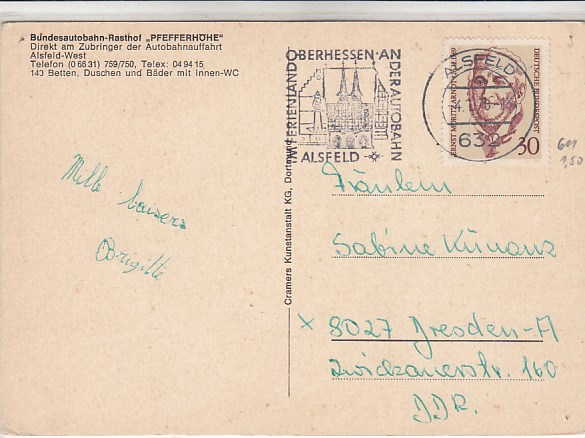 Bundesautobahn-Rasthof „PFEFFERHÖHE"
Direkt am Zubringer der Autobahnauffahrt
Alsfeld-West
Telefon (0 66 31) 759/750, Telex: 04 94 15
140 Betten, Duschen und Bäder mit Innen-WC
Mille baisers
Brigitte
Cramers Kunstanstalt KG, Dortmund
IM FERIENLAND OBERHESSEN · AN DER AUTOBAHN
ALSFELD
ALSFELD
632
ERNST MORITZ ARNDT
DEUTSCHE BUNDESPOST
30
611
1,50
Fräulein
Sabine Künanz
x 8027 Dresden-A
Zwickauerstr. 160
DDR.